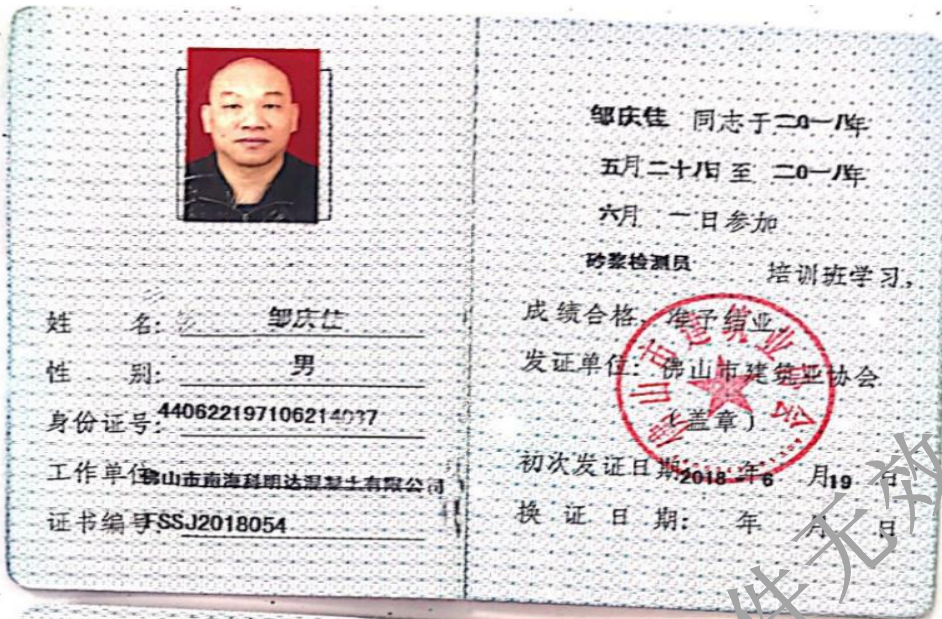 姓 名: 邹庆佳
性 别: 男
身份证号: 440622197106214037
工作单位 佛山市南海科明达混凝土有限公司
证书编号: FSSJ2018054
邹庆佳 同志于二0一八年
五月二十八日 至 二0一八年
六月 一日参加
砂浆检测员 培训班学习,
成绩合格, 准予结业。
发证单位: 佛山市建筑业协会
(盖章)
初次发证日期 2018 年 6 月 19 日
换 证 日 期: 年 月 日
佛山市建筑业协会
件无效